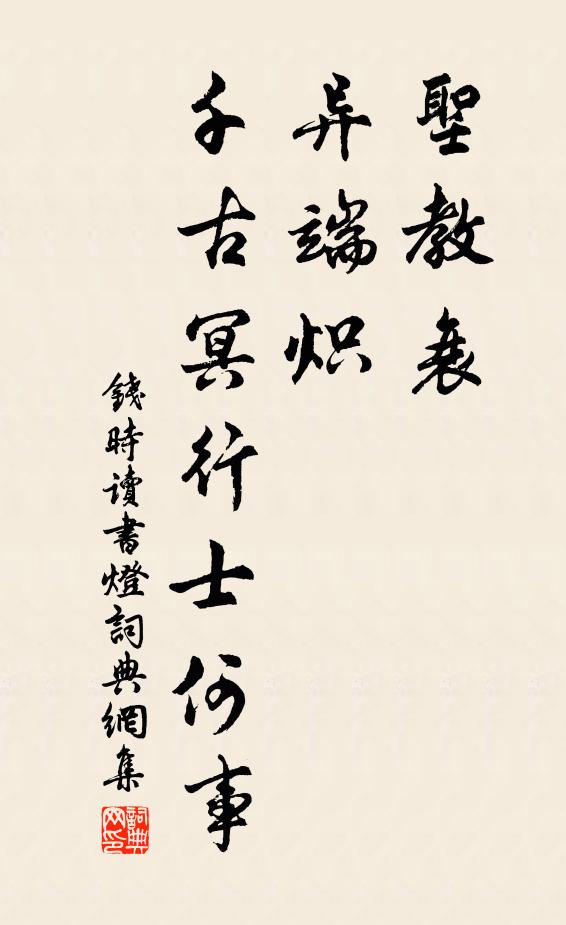 聖教衰
异端炽
千古冥行士何事
錢時讀書燈詞典網集
詞典网印